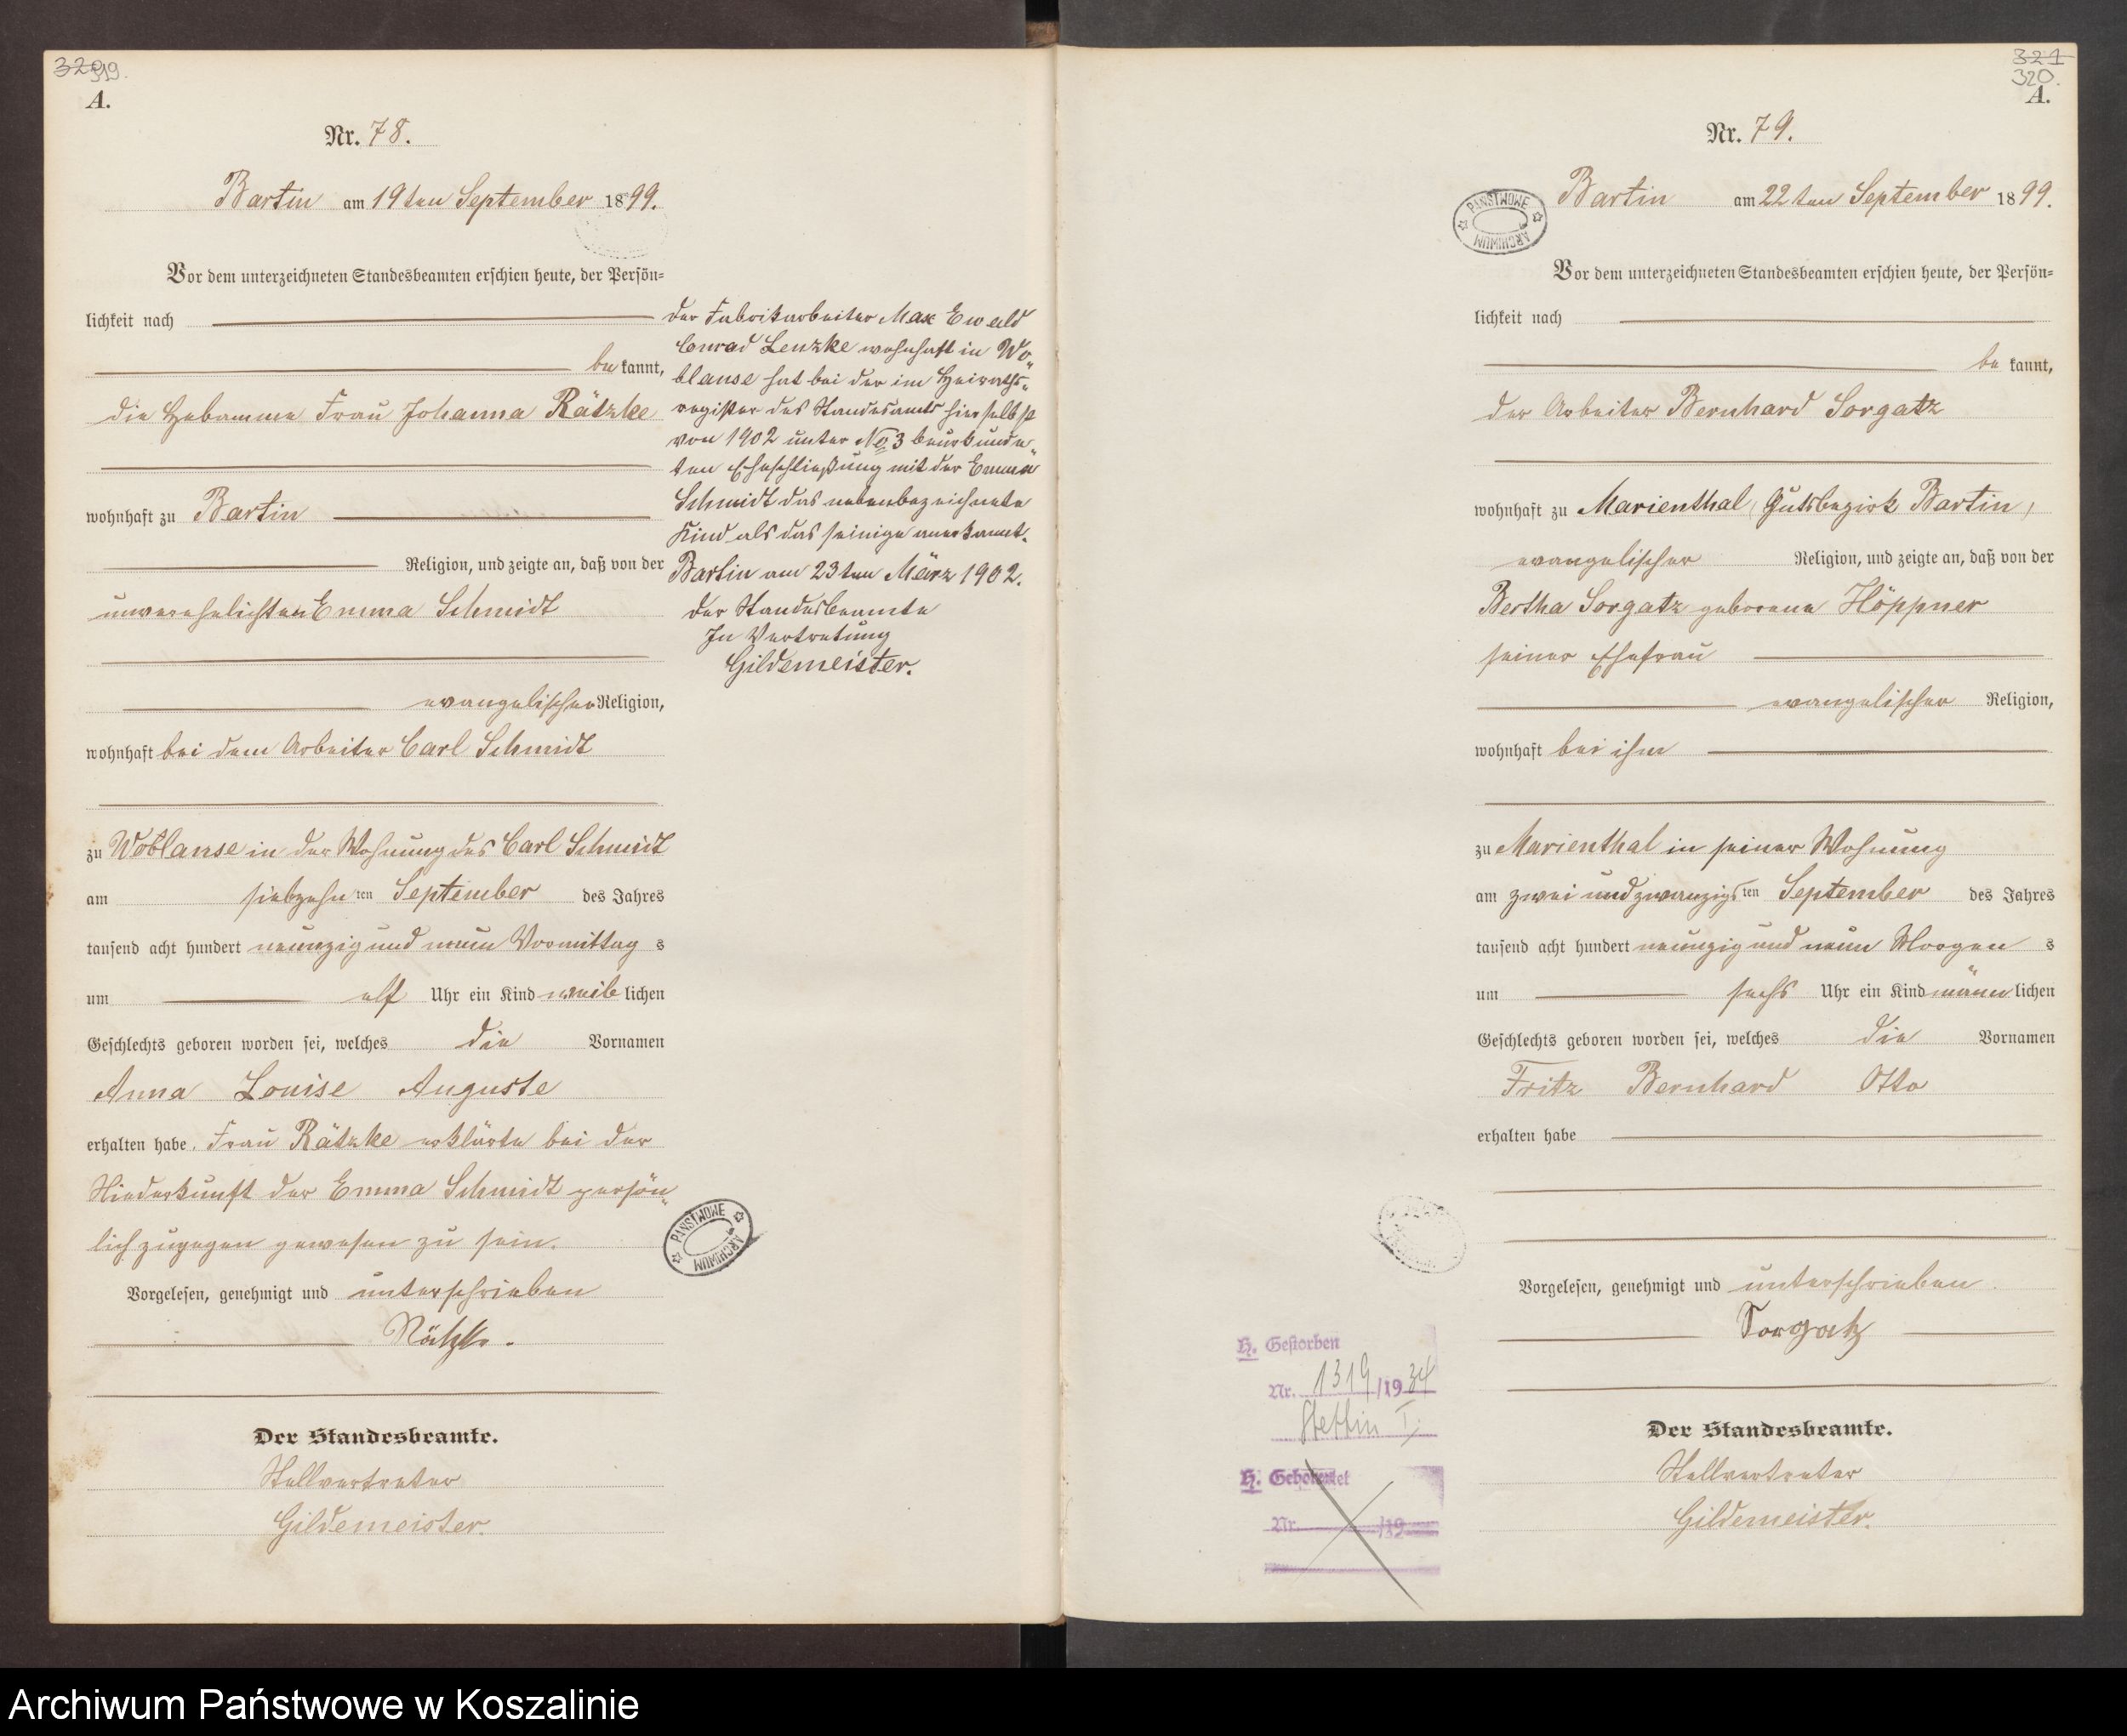 320 319.
A.
Nr. 78.
Bartin am 19ten September 1899.
Vor dem unterzeichneten Standesbeamten erschien heute, der Persön=
lichkeit nach
be kannt,
die Hebamme Frau Johanna Rätzke
wohnhaft zu Bartin
Religion, und zeigte an, daß von der
unverehelichten Emma Schmidt
evangelischer Religion,
wohnhaft bei dem Arbeiter Carl Schmidt
zu Woblanse in der Wohnung des Carl Schmidt
am siebzehn ten September des Jahres
tausend acht hundert neunzig und neun Vormittag s
um elf Uhr ein Kind weib lichen
Geschlechts geboren worden sei, welches die Vornamen
Anna Louise Auguste
erhalten habe. Frau Rätzke erklärte bei der
Niederkunft der Emma Schmidt persön„
lich zugegen gewesen zu sein.
Vorgelesen, genehmigt und unterschrieben
Rätzke.
Der Standesbeamte.
Stellvertreter
Gildemeister.
Der Fabrikarbeiter Max Ewald
Conrad Lenzke wohnhaft in Wo„
blanse hat bei der im Heiraths„
register des Standesamts hierselbst
von 1902 unter No 3 beurkunde„
ten Eheschließung mit der Emma
Schmidt das nebenbezeichnete
Kind als das seinige anerkannt.
Bartin am 23ten März 1902.
Der Standesbeamte
In Vertretung
Gildemeister.
PAŃSTWOWE ARCHIWUM
321
320.
A.
Nr. 79.
PAŃSTWOWE ARCHIWUM
Bartin am 22ten September 1899.
Vor dem unterzeichneten Standesbeamten erschien heute, der Persön=
lichkeit nach
be kannt,
der Arbeiter Bernhard Sorgatz
wohnhaft zu Marienthal, (Gutsbezirk Bartin)
evangelischer Religion, und zeigte an, daß von der
Bertha Sorgatz geborene Höppner
seiner Ehefrau
evangelischer Religion,
wohnhaft bei ihm
zu Marienthal in seiner Wohnung
am zwei und zwanzigs ten September des Jahres
tausend acht hundert neunzig und neun Morgen s
um sechs Uhr ein Kind männ lichen
Geschlechts geboren worden sei, welches die Vornamen
Fritz Bernhard Otto
erhalten habe
Vorgelesen, genehmigt und unterschrieben.
Sorgatz
Der Standesbeamte.
Stellvertreter
Gildemeister.
H. Gestorben
Nr. 1319/1934
Stettin I,
H. Geheiratet
Nr. /19
Archiwum Państwowe w Koszalinie